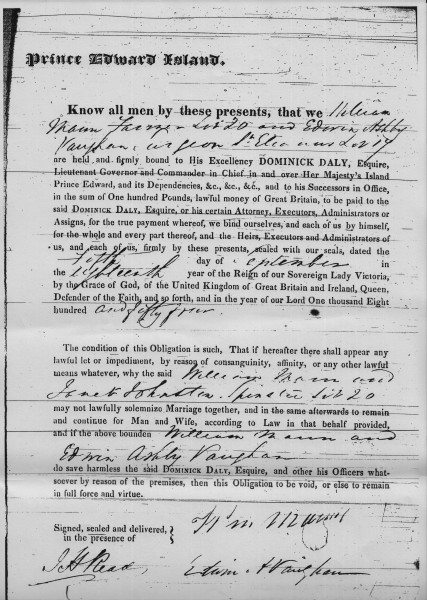 Prince Edward Island.
Know all men by these presents, that we William
Mann Farmer Lot 20 and Edwin Ashby
Vaughan, Surgeon St Eleanors Lot 17
are held and firmly bound to His Excellency DOMINICK DALY, Esquire,
Lieutenant Governor and Commander in Chief in and over Her Majesty's Island
Prince Edward, and its Dependencies, &c., &c., &c., and to his Successors in Office,
in the sum of One hundred Pounds, lawful money of Great Britain, to be paid to the
said DOMINICK DALY, Esquire, or his certain Attorney, Executors, Administrators or
Assigns, for the true payment whereof, we bind ourselves, and each of us by himself,
for the whole and every part thereof, and the Heirs, Executors and Administrators of
us, and each of us, firmly by these presents, sealed with our seals, dated the
day of September in
the eighteenth year of the Reign of our Sovereign Lady Victoria,
by the Grace of God, of the United Kingdom of Great Britain and Ireland, Queen,
Defender of the Faith, and so forth, and in the year of our Lord One thousand Eight
hundred and fifty four
The condition of this Obligation is such, That if hereafter there shall appear any
lawful let or impediment, by reason of consanguinity, affinity, or any other lawful
means whatever, why the said William Mann and
Janet Johnston Spinster Lot 20
may not lawfully solemnize Marriage together, and in the same afterwards to remain
and continue for Man and Wife, according to Law in that behalf provided,
and if the above bounden William Mann and
Edwin Ashby Vaughan
do save harmless the said DOMINICK DALY, Esquire, and other his Officers what-
soever by reason of the premises, then this Obligation to be void, or else to remain
in full force and virtue.
Signed, sealed and delivered,
in the presence of
Wm Mann
J H Read,
Edwin A Vaughan